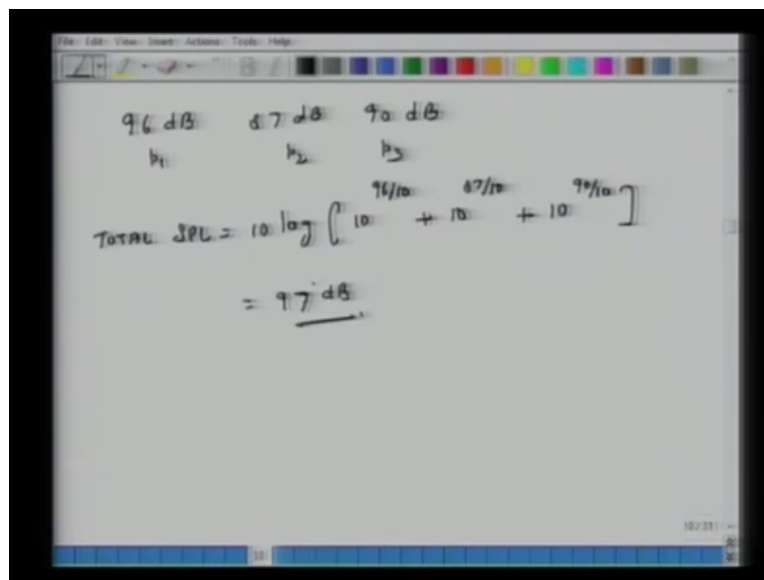 File Edit View Insert Actions Tools Help
96 dB 87 dB 90 dB
p₁ p₂ p₃
TOTAL SPL = 10 log [ 10^96/10 + 10^87/10 + 10^90/10 ]
= 97 dB
10/31
10